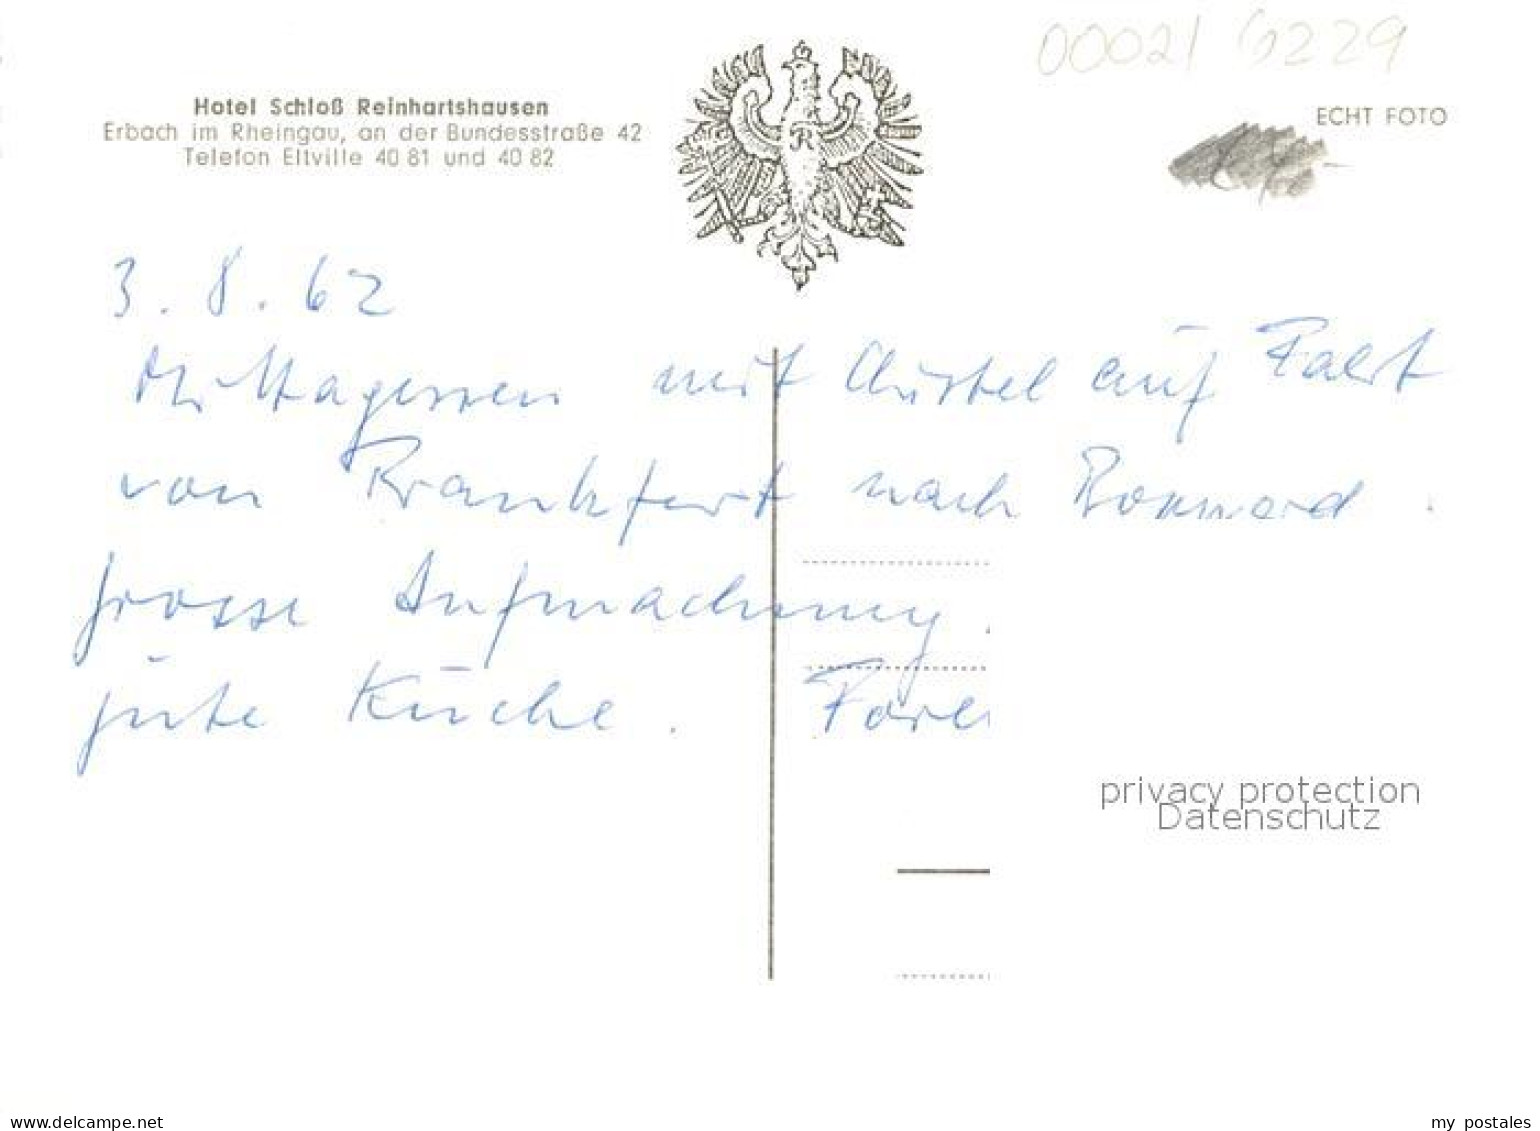 00021 6229
Hotel Schloß Reinhartshausen
Erbach im Rheingau, an der Bundesstraße 42
Telefon Eltville 40 81 und 40 82
ECHT FOTO
3. 8. 62
Mittagessen mit Christel auf Fahrt
von Frankfurt nach
grosse Aufmachung.
gute Küche. Forel
privacy protection
Datenschutz
delcampe.net
my_postales